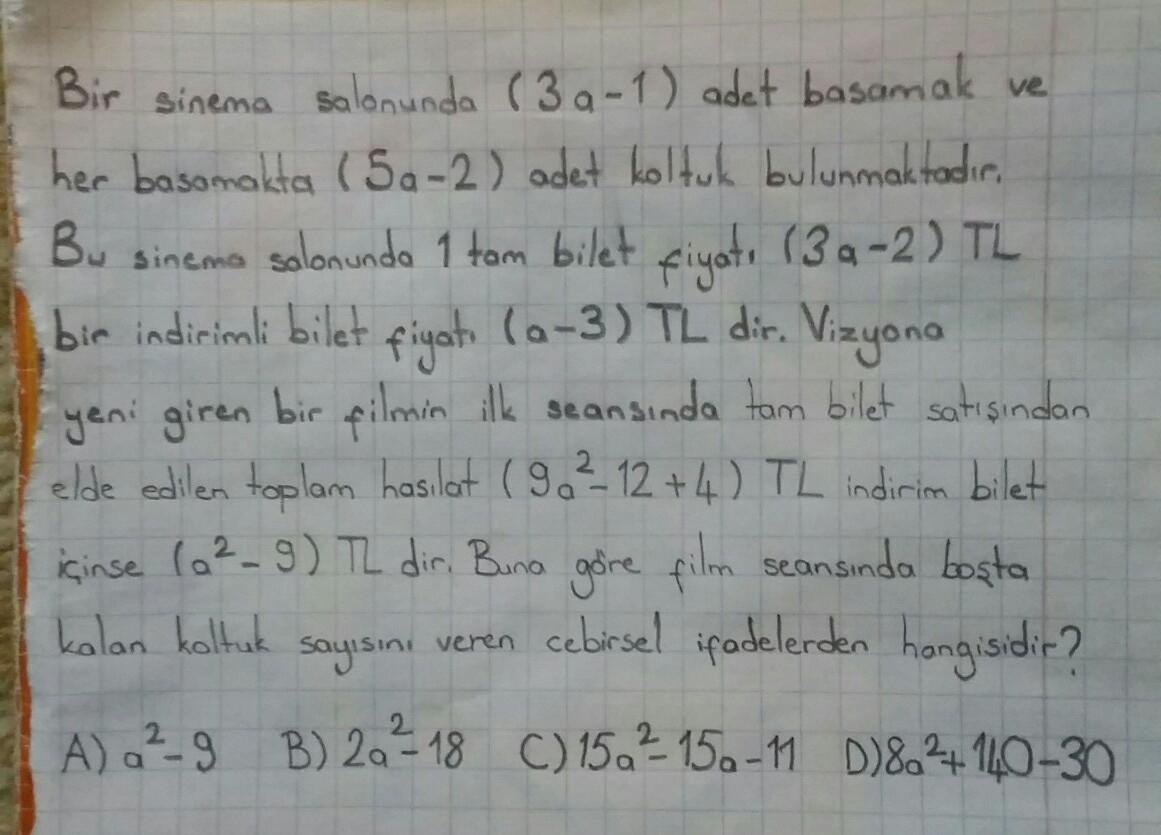 Bir sinema salonunda (3a-1) adet basamak ve
her basamakta (5a-2) adet koltuk bulunmaktadır.
Bu sinema salonunda 1 tam bilet fiyatı (3a-2) TL
bir indirimli bilet fiyatı (a-3) TL dir. Vizyona
yeni giren bir filmin ilk seansında tam bilet satışından
elde edilen toplam hasılat (9a²-12+4) TL indirim bilet
içinse (a²-9) TL dir. Buna göre film seansında boşta
kalan koltuk sayısını veren cebirsel ifadelerden hangisidir?
A) a²-9 B) 2a²-18 C) 15a²-15a-11 D) 8a²+140-30